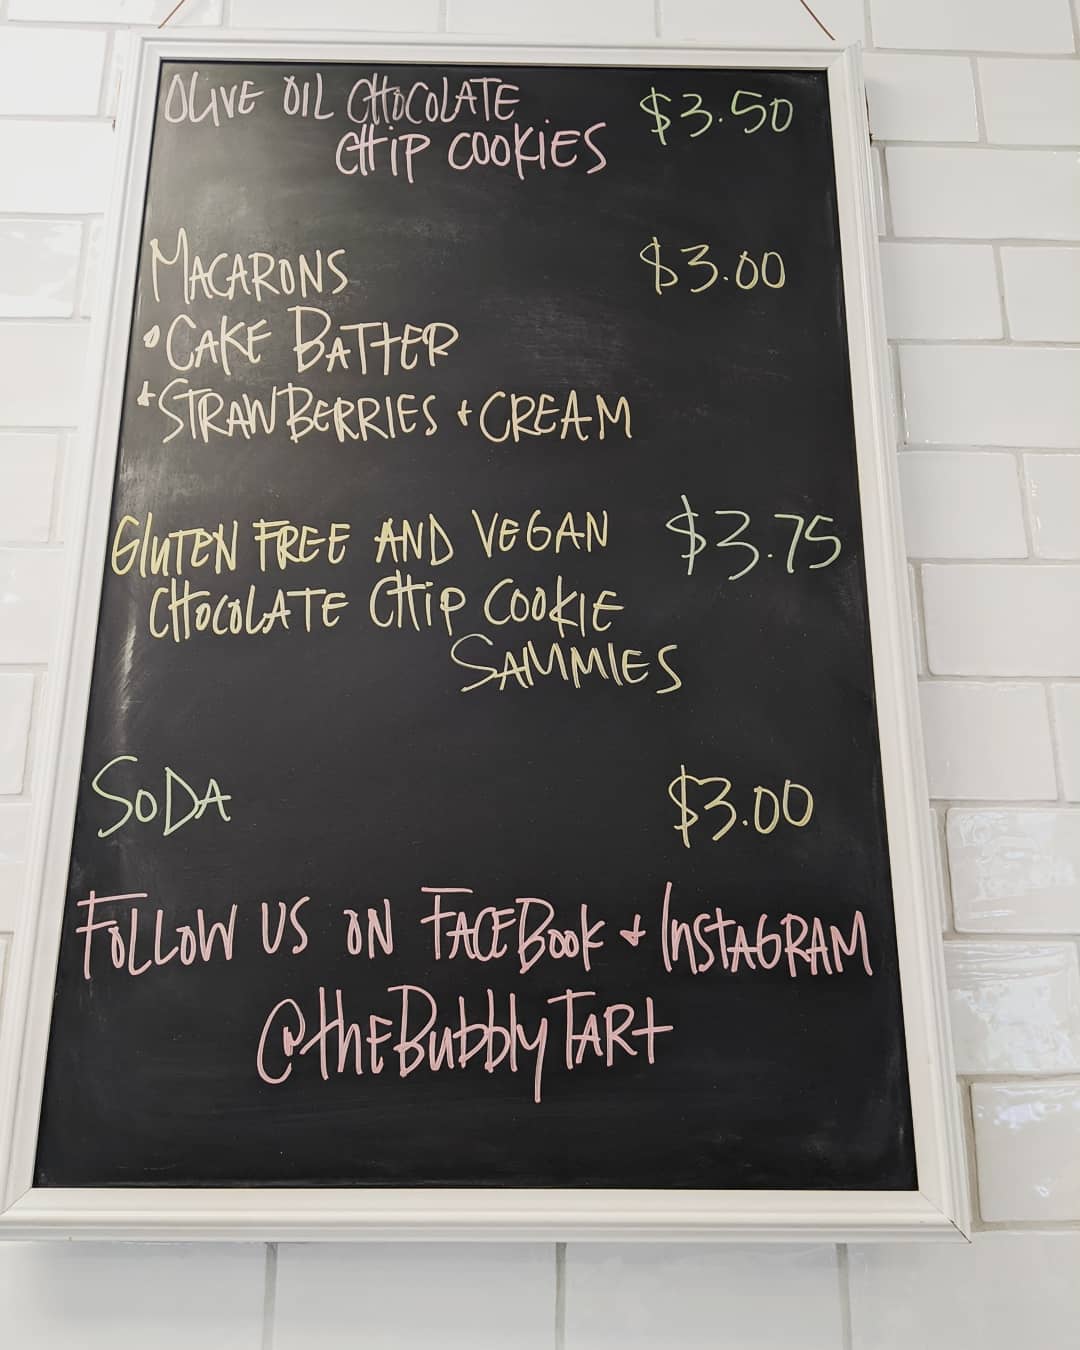 OLIVE OIL CHOCOLATE $3.50
CHIP COOKIES
MACARONS $3.00
• CAKE BATTER
+ STRAWBERRIES + CREAM
GLUTEN FREE AND VEGAN $3.75
CHOCOLATE CHIP COOKIE
SAMMIES
SODA $3.00
FOLLOW US ON FACEBOOK + INSTAGRAM
@theBubblyTART